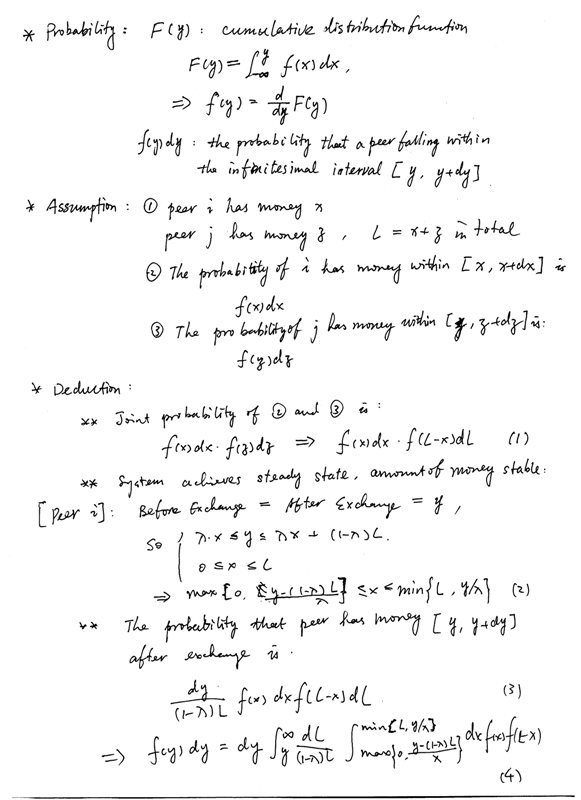 * Probability: F(y): cumulative distribution function
F(y) = ∫_{-∞}^{y} f(x) dx,
⇒ f(y) = d/dy F(y)
f(y)dy : the probability that a peer falling within
the infinitesimal interval [y, y+dy]
* Assumption: ① peer i has money x
peer j has money z, L = x+z in total
② The probability of i has money within [x, x+dx] is
f(x)dx
③ The probability of j has money within [z, z+dz] is:
f(z)dz
* Deduction:
** Joint probability of ② and ③ is:
f(x)dx · f(z)dz ⇒ f(x)dx · f(L-x)dL (1)
** System achieves steady state, amount of money stable:
[Peer i]: Before Exchange = After Exchange = y,
So { λ·x ≤ y ≤ λx + (1-λ)L.
0 ≤ x ≤ L
⇒ max{0, [y-(1-λ)L]/λ} ≤ x ≤ min{L, y/λ} (2)
** The probability that peer has money [y, y+dy]
after exchange is.
dy/((1-λ)L) f(x) dx f(L-x) dL (3)
⇒ f(y) dy = dy ∫_{y}^{∞} dL/((1-λ)L) ∫_{max{0, (y-(1-λ)L)/λ}}^{min{L, y/λ}} dx f(x) f(L-x)
(4)